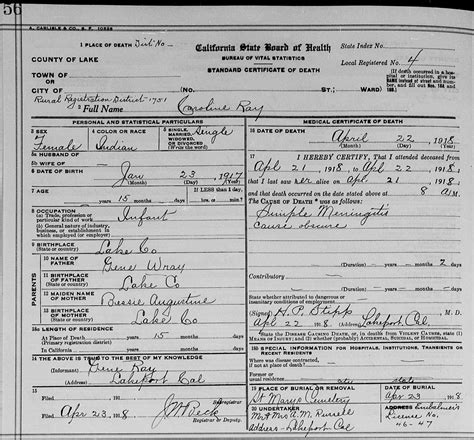 56
A. CARLISLE & CO., S. F.
1 PLACE OF DEATH Dist. No
COUNTY OF LAKE
TOWN OF
or
CITY OF
Rural Registration District 1751
California State Board of Health
BUREAU OF VITAL STATISTICS
STANDARD CERTIFICATE OF DEATH
State Index No.
Local Registered No. 4
(No. St.; Ward)
(If death occurred in a hospital or institution, give its NAME instead of street and number, and fill out Nos. 18d and 18B.)
2 Full Name Caroline Ray
PERSONAL AND STATISTICAL PARTICULARS
3 SEX Female
4 COLOR OR RACE Indian
5 SINGLE, MARRIED, WIDOWED, OR DIVORCED (Write the word) Single
5a HUSBAND OF
5b WIFE OF
6 DATE OF BIRTH Jan 23 1917
(Month) (Day) (Year)
7 AGE
years 15 months days
If LESS than 1 day, hrs.
8 OCCUPATION
(a) Trade, profession or particular kind of work Infant
(b) General nature of industry, business, or establishment in which employed (or employer)
9 BIRTHPLACE (State or Country) Lake Co
PARENTS
10 NAME OF FATHER Gene Wray
11 BIRTHPLACE OF FATHER (State or Country) Lake Co
12 MAIDEN NAME OF MOTHER Bessie Augustine
13 BIRTHPLACE OF MOTHER (State or Country) Lake Co
LENGTH OF RESIDENCE
At Place of Death years 15 months days
(Primary registration district)
In California years months days
14 THE ABOVE IS TRUE TO THE BEST OF MY KNOWLEDGE
(Informant) Gene Ray
(Address) Lakeport Cal
15
Filed Apr 23, 1918
Registrar or Deputy
MEDICAL CERTIFICATE OF DEATH
16 DATE OF DEATH
April 22, 1918
(Month) (Day) (Year)
17 I HEREBY CERTIFY, That I attended deceased from
Apl 21 1918, to Apl 22 1918
that I last saw her alive on Apl 21 1918
and that death occurred on the date stated above at 8 A M.
The CAUSE OF DEATH * was as follows:
Simple Meningitis
Cause obscure
(Duration) years months 2 days
Contributory
(Duration) years months days
State whether attributed to dangerous or insanitary conditions of employment
(Signed) H. P. Stipp M. D.
Apl 22 1918 (Address) Lakeport Cal
18 SPECIAL INFORMATION FOR HOSPITALS, INSTITUTIONS, TRANSIENTS OR RECENT RESIDENTS
Where was disease contracted, if not at place of death?
Former or usual residence
19 PLACE OF BURIAL OR REMOVAL
St Marys Cemetery
DATE OF BURIAL
Apr 23 1918
20 UNDERTAKER
Mrs A. M. Russell
Address Lakeport Cal
Embalmer's License No.
46-47